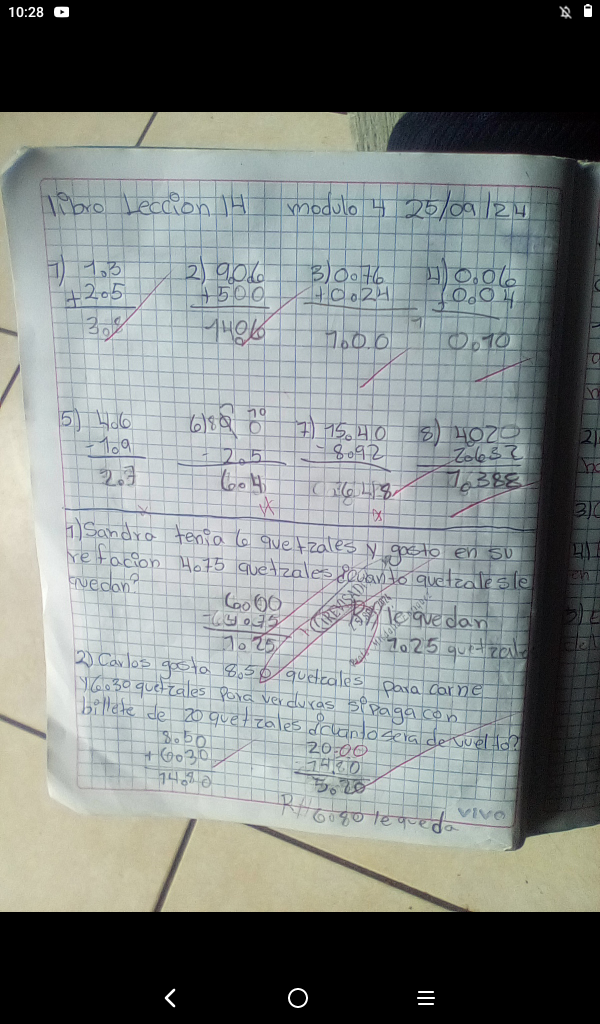 10:28
libro Leccion 14 modulo 4 25/09/24
1) 1.3 2) 9.06 3) 0.76 4) 0.06
+2.5 +500 +0.24 +0.04
3.8 1406 1.0.0 0.10
5) 4.6 6) 7) 15.40 8) 4020
-1.9 - 2.5 -8.92 2.632
2.7 6.4 6.48 1.388
1) Sandra tenia 6 quetzales y gasto en su
refacion 4.75 quetzales ¿cuanto quetzales le
quedan?
6.00
- 4.75 le quedan
1.25 1.25 quetzales
REVISADO
2) Carlos gasta 8.50 quetzales para carne
y 6.30 quetzales para verduras si paga con
billete de 20 quetzales ¿cuanto sera de vuelto?
8.50 20.00
+ 6.30 - 14.80
14.80 5.20
R// 6.80 le queda
vivo